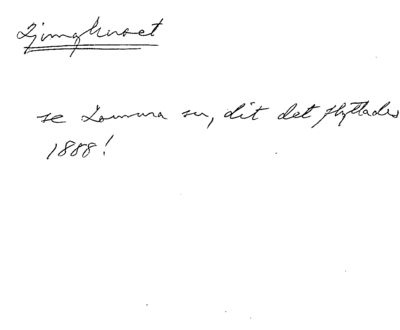 Ljunghuset
se Lommra sn, dit det flyttades
1888!